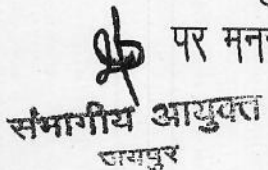 पर मन
संभागीय आयुक्त
रायपुर